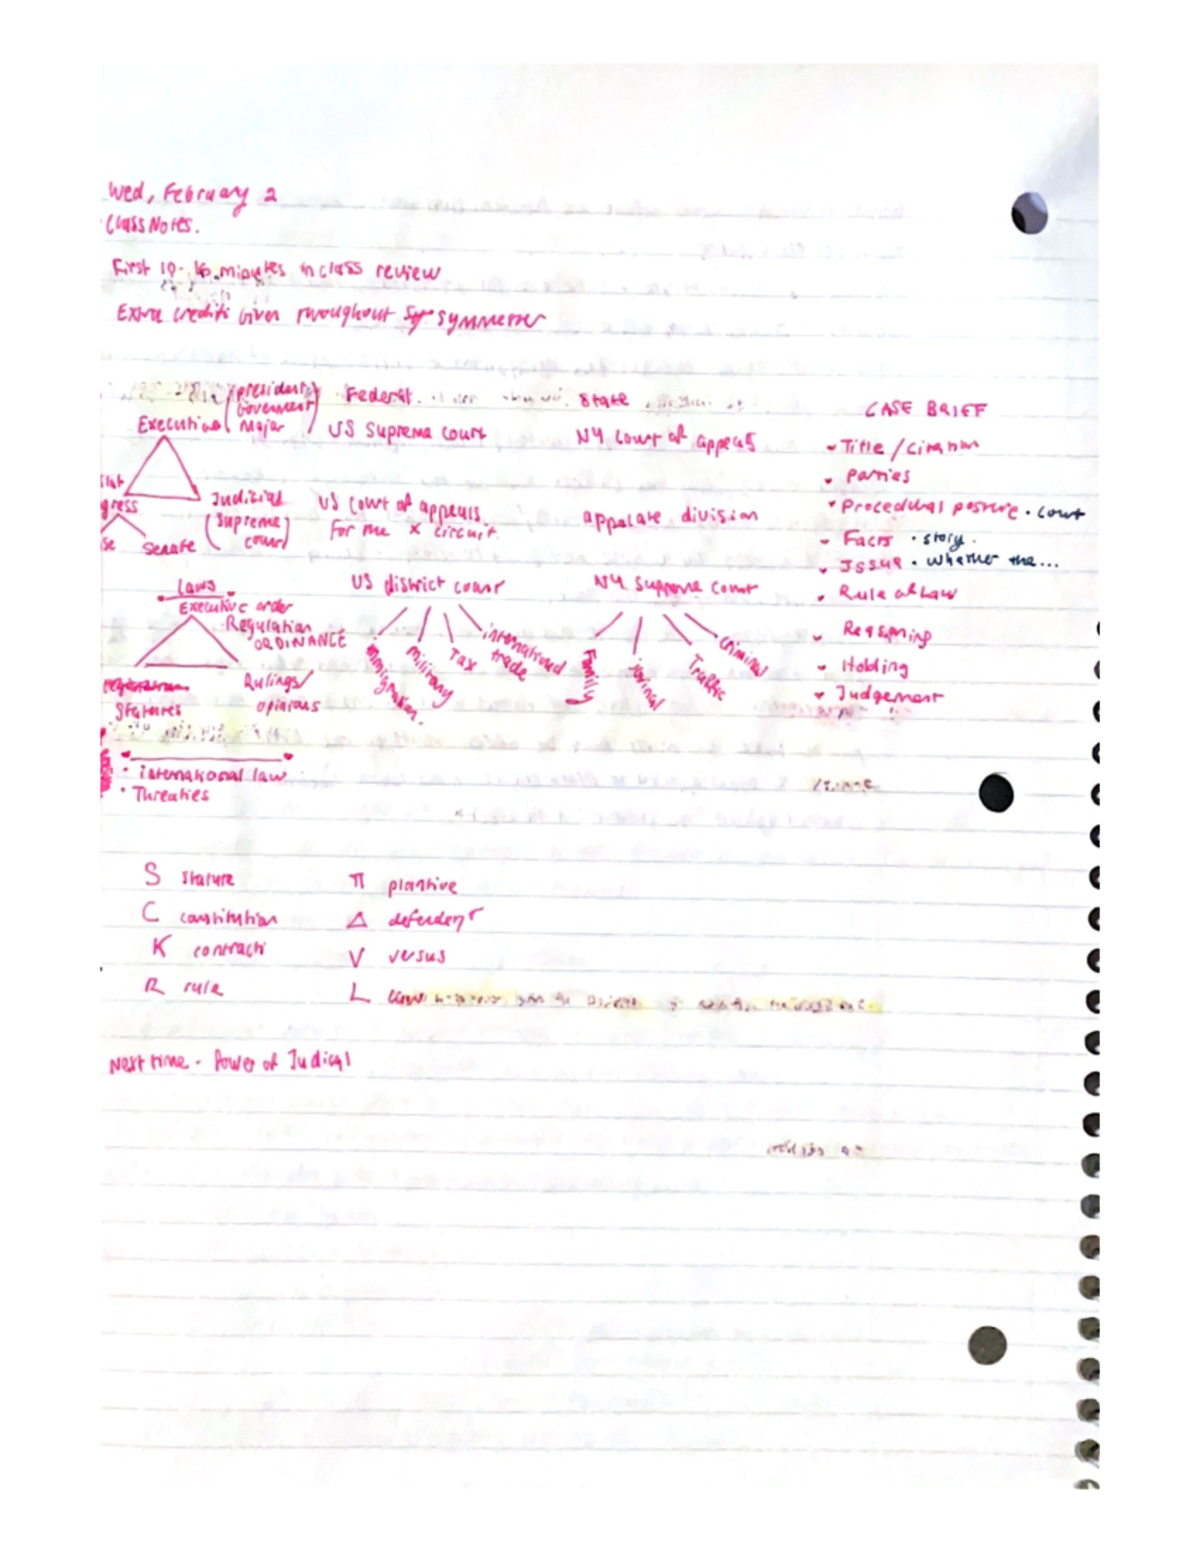 Wed, February 2
Class Notes.
First 10- 15 minutes in class review
Extra credits Given throughout symmester
(president
Government
major)
Executive
Judicial
(supreme
court)
gress
se senate
Federal
US Supreme court
US court of appeals
For the x circuit.
US district court
immigration.
military
Tax
international
trade
State
NY court of appeals
appalate division
NY supreme court
Family
Traffic
criminal
CASE BRIEF
Title / citation
parties
Procedural posture • court
Facts • story.
Issue • whether the...
Rule of Law
Reasoning
Holding
Judgement
Laws
Executive order
Regulation
ORDINANCE
Statutes
Rulings/
opinions
• international law
• Threaties
S statute
C constitution
K contract
R rule
π plantive
Δ defendent
V versus
L
Next time - Power of Judical